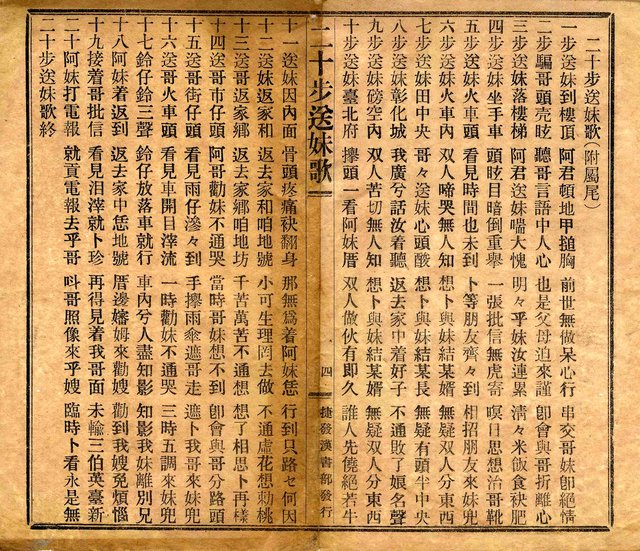 二十步送妹歌(附屬尾)
一步送妹到樓頂 阿君頓地甲搥胸 前世無做呆心行 串交哥妹卽絕情
二步騙哥頭壳眩 聽哥言語中人心 也是父母迫來謹 卽會與哥折離心
三步送妹落樓梯 阿君送妹喘大愧 明々乎妹汝連累 淸々米飯食袂肥
四步送妹坐手車 頭眩目暗倒重舉 一張批信無虎寄 嘆日思想治哥靴
五步送妹火車頭 看見時間也未到 卜等朋友齊々到 相招朋友來妹兜
六步送妹火車內 双人啼哭無人知 想卜與妹結某婿 無疑双人分東西
七步送妹田中央 哥々送妹心頭酸 想卜與妹結某長 無疑有頭半中央
八步送妹彰化城 我廣兮話汝着聽 返去家中着好子 不通敗了娘名聲
九步送妹磅空內 双人苦切無人知 想卜與妹結某婿 無疑双人分東西
十步送妹臺北府 攑頭一看阿妹厝 双人做伙有卽久 誰人先僥絕若牛
二十步送妹歌
四
捷發漢書部發行
十一送妹因內面 骨頭疼痛袂翻身 那無爲着阿妹恁 行到只路乜何因
十二送妹返家和 返去家和咱地號 小可生理罔去做 不通虛花想勅桃
十三送哥返家鄕 返去家鄕咱地坊 千苦萬苦不通想 想了相思卜再樣
十四送哥市仔頭 阿哥勸妹不通哭 當時哥妹想不到 卽會與哥分路頭
十五送哥街仔頭 看見雨仔滲々到 手攑雨傘遮哥走 遮卜我哥來妹兜
十六送哥火車頭 看見車開目滓流 一時勸妹不通哭 三時五調來妹兜
十七鈴仔鈴三聲 鈴仔放落車就行 車內兮人盡知影 知影我妹離別兄
十八阿妹着返到 返去家中恁地號 厝邊嬸姆來勸號 勸到我嫂免煩惱
十九接着哥批信 看見泪滓就卜珍 再得見着我哥面 未輸三伯英臺新
二十阿妹打電報 就貢電報去乎哥 呌哥照像來乎嫂 臨時卜看永是無
二十步送妹歌終